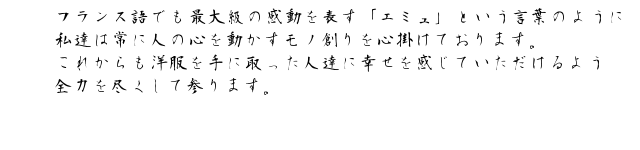 フランス語でも最大級の感動を表す「エミュ」という言葉のように
私達は常に人の心を動かすモノ創りを心掛けております。
これからも洋服を手に取った人達に幸せを感じていただけるよう
全力を尽くして参ります。